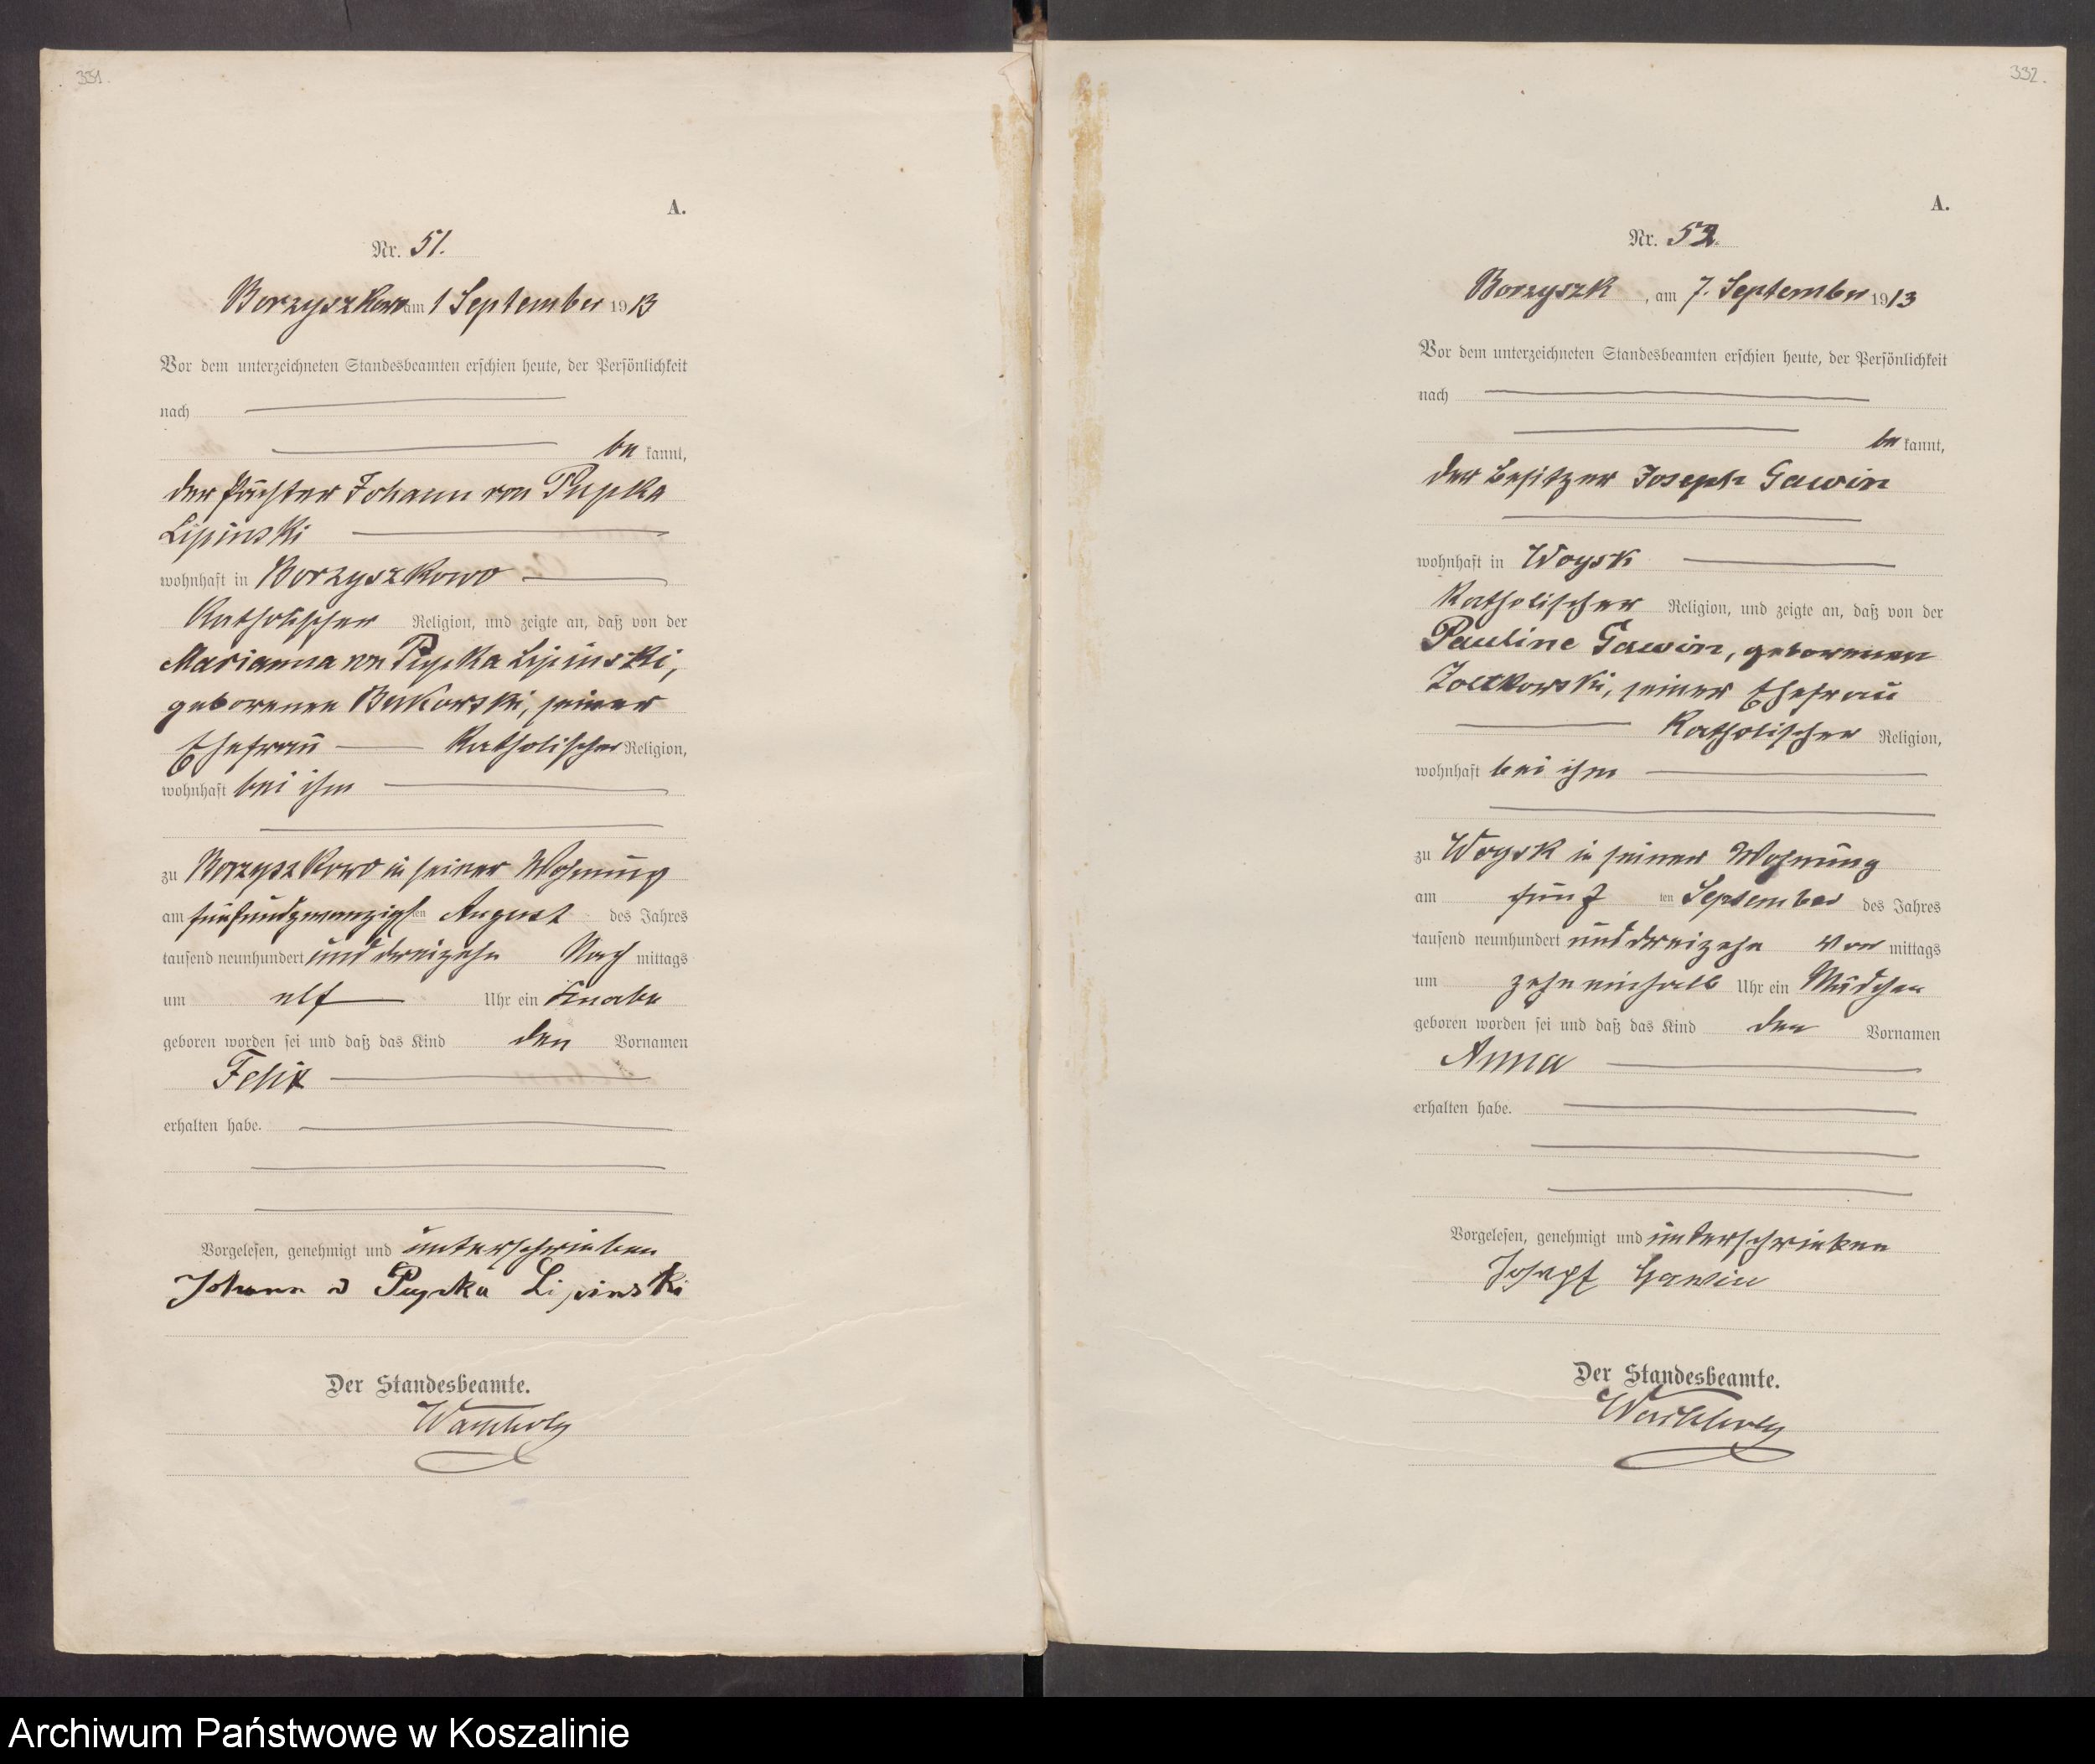 331.
A.
Nr. 51.
Borzyszkowo am 1 September 1913
Vor dem unterzeichneten Standesbeamten erschien heute, der Persönlichkeit
nach
be kannt,
der Pächter Johann von Pupka
Lipinski
wohnhaft in Borzyszkowo
Katholischer Religion, und zeigte an, daß von der
Marianna von Pupka Lipinski,
geborenen Bukowski, seiner
Ehefrau Katholischer Religion,
wohnhaft bei ihm
zu Borzyszkowo in seiner Wohnung
am fünfundzwanzigsten August des Jahres
tausend neunhundert und dreizehn Nach mittags
um elf Uhr ein Knabe
geboren worden sei und daß das Kind den Vornamen
Felix
erhalten habe.
Vorgelesen, genehmigt und unterschrieben
Johann v Pupka Lipinski
Der Standesbeamte.
332.
A.
Nr. 52.
Borzyszk, am 7. September 1913
Vor dem unterzeichneten Standesbeamten erschien heute, der Persönlichkeit
nach
be kannt,
der Besitzer Joseph Gawin
wohnhaft in Woysk
Katholischer Religion, und zeigte an, daß von der
Pauline Gawin, geborenen
seiner Ehefrau
Katholischer Religion,
wohnhaft bei ihm
zu Woysk in seiner Wohnung
am fünf ten September des Jahres
tausend neunhundert und dreizehn Vor mittags
um zehneinhalb Uhr ein Mädchen
geboren worden sei und daß das Kind den Vornamen
Anna
erhalten habe.
Vorgelesen, genehmigt und unterschrieben
Josepf Gawin
Der Standesbeamte.
Archiwum Państwowe w Koszalinie